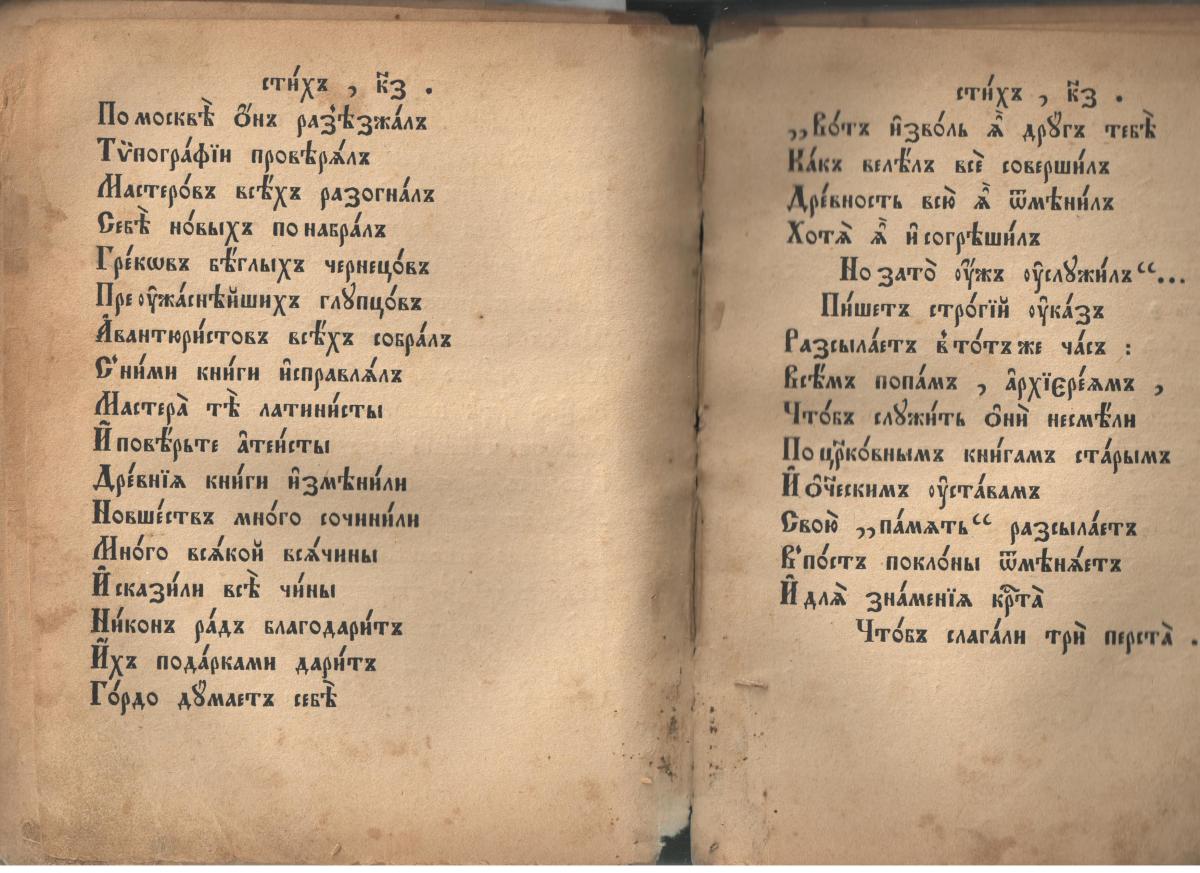 сти́хъ , к҃з .
По москвѣ̀ ѻ҆́нъ раз̾ѣзжа́лъ
Тѷпогра́фїи провѣрѧ́лъ
Мастеро́въ всѣ́хъ разогна́лъ
Себѣ̀ но́выхъ по набра́лъ
Гре́кѡвъ бѣ́глыхъ чернецо́въ
Пре ᲂу҆жа́снѣйшихъ глꙋпцо́въ
А҆вантюри́стовъ всѣ́хъ собра́лъ
С̾ ни́ми кни́ги и҆справлѧ́лъ
Мастера̀ тѣ̀ латини́сты
И҆ повѣ́рьте а҆теи́сты
Дре́внїѧ кни́ги и҆змѣни́ли
Новше́ствъ мно́го сочини́ли
Мно́го всѧ́кой всѧ́чины
И҆ скази́ли всѣ̀ чи́ны
Ни́конъ ра́дъ благодари́тъ
И҆́хъ пода́рками дари́тъ
Го́рдо дꙋ́маетъ себѣ̀
сти́хъ , к҃з .
„Во́тъ и҆зво́ль ѧ҆̀ дрꙋ́гъ тебѣ̀
Ка́къ велѣ́лъ всѐ соверши́лъ
Дре́вность всю̀ ѧ҆̀ ѿмѣни́лъ
Хотѧ̀ ѧ҆̀ и҆ согрѣши́лъ
Но зато̀ ᲂу҆́жъ ᲂу҆слꙋжи́лъ“...
Пи́шетъ стро́гїй ᲂу҆ка́зъ
Разсыла́етъ в̾ то́тъ же ча́съ :
Всѣ́мъ попа́мъ , а҆рхїєре́ѧмъ ,
Что́бъ слꙋжи́ть ѻ҆нѝ несмѣ́ли
По цр҃ко́внымъ кни́гамъ ста́рымъ
И҆ ѻ҆ч҃ескимъ ᲂу҆ста́вамъ
Свою̀ „па́мѧть“ разсыла́етъ
В̾ по́стъ покло́ны ѿмѣнѧ́етъ
И҆ длѧ̀ зна́менїѧ крⷭ҇та̀
Что́бъ слага́ли трѝ перста̀ .